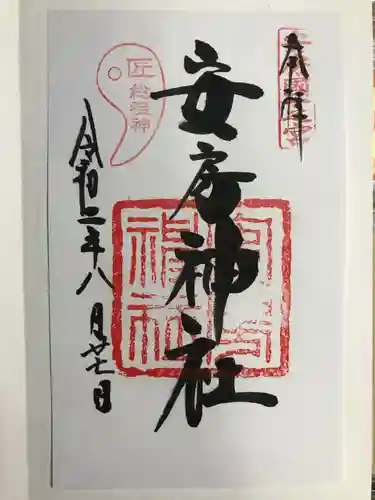 奉拝
安房神社
令和二年八月廿七日
匠総祖神
安房神社